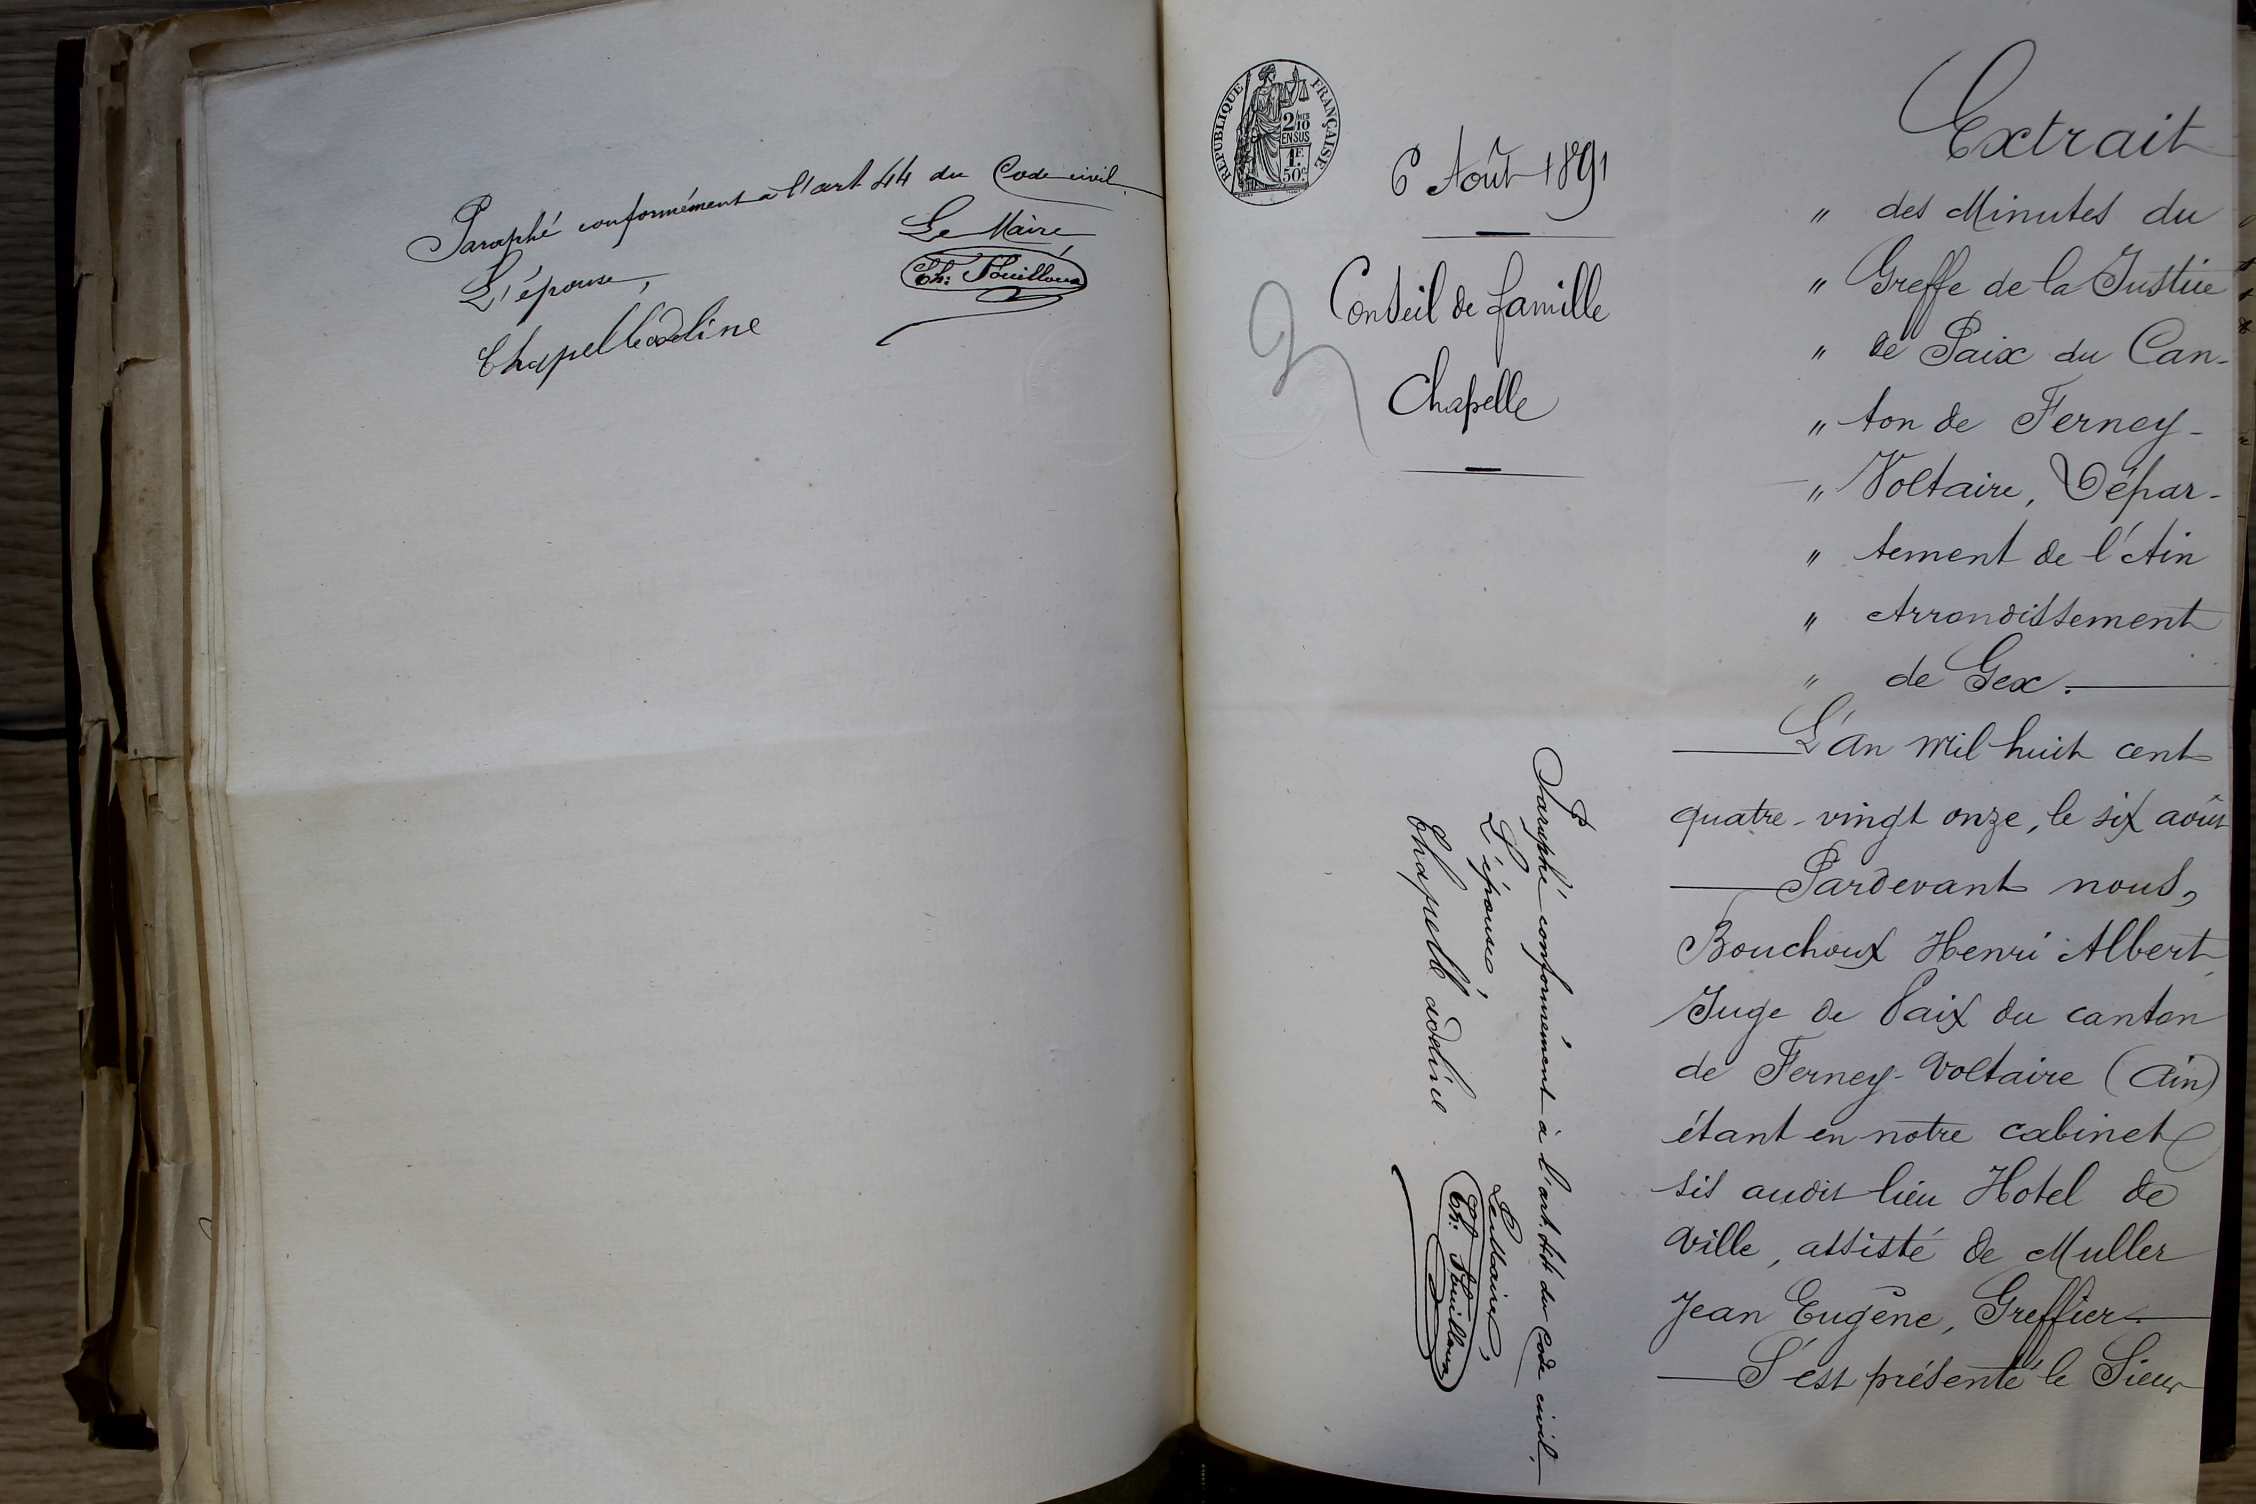 Paraphé conformément à l'art 44 du Code civil
Le Maire
L'épouse,
Chapelle adeline
RÉPUBLIQUE FRANÇAISE
2/10
EN SUS
1F.
50c.
6 Août 1891
Conseil de famille
Chapelle
Paraphé conformément à l'art. 44 du Code civil.
L'épouse,
Le Maire,
Chapelle adeline
Extrait
" des Minutes du
" Greffe de la Justice
" de Paix du Can-
" ton de Ferney-
" Voltaire, Dépar-
" tement de l'Ain
" Arrondissement
" de Gex.
L'an mil huit cent
quatre-vingt onze, le six août
Pardevant nous,
Bouchoux Henri Albert,
Juge de Paix du canton
de Ferney-Voltaire (Ain)
étant en notre cabinet
sis audit lieu Hotel de
Ville, assisté de Muller
Jean Eugène, Greffier.
S'est présenté le Sieur